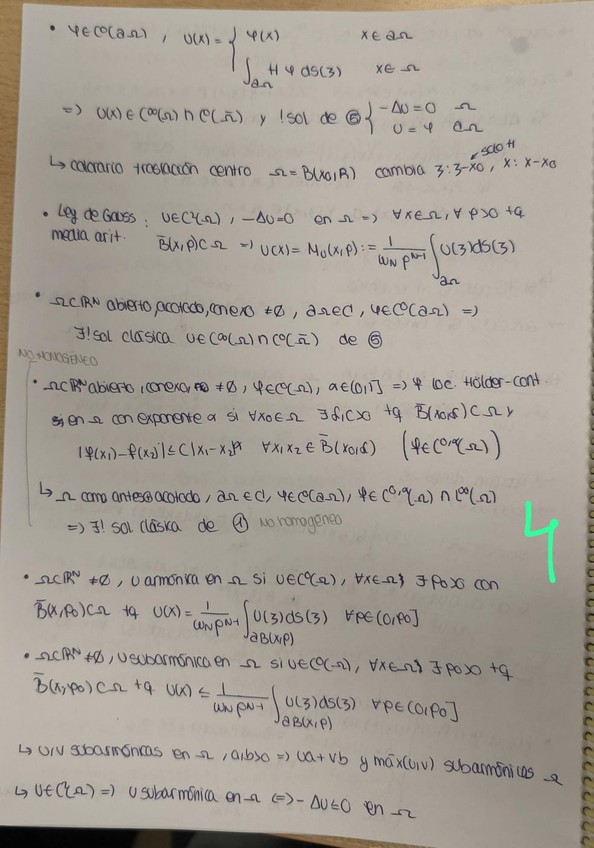 • φ∈C⁰(∂Ω), U(x) = { φ(x) x∈∂Ω
∫∂Ω H φ dS(3) x∈Ω
=> U(x)∈C∞(Ω)∩C⁰(Ω̄) y ! sol de ⑤ { -ΔU=0 Ω
U=φ ∂Ω
↳ colorario traslación centro Ω=B(x0,R) cambia 3:3-x0, x: x-x0
solo H
• Ley de Gauss: U∈C²(Ω), -ΔU=0 en Ω => ∀x∈Ω, ∀ρ>0 tq
media arit. B̄(x,ρ)⊂Ω => U(x)=Mu(x,ρ):= 1/(ωN ρ^(N-1)) ∫∂Ω U(3)dS(3)
• Ω⊂ℝᴺ abierto, acotado, conexo ≠∅, ∂Ω∈C¹, φ∈C⁰(∂Ω) =>
∃! sol clásica U∈C∞(Ω)∩C⁰(Ω̄) de ⑤
NO HOMOGÉNEO
• Ω⊂ℝᴺ abierto, conexo, ≠∅, φ∈C⁰(Ω), α∈(0,1] => φ loc. Hölder-cont
en Ω con exponente α si ∀x0∈Ω ∃δ,C>0 tq B̄(x0,δ)⊂Ω y
|φ(x1)-f(x2)|≤C|x1-x2|^α ∀x1x2∈B̄(x0,δ) (φ∈C^0,α(Ω))
↳ Ω como antes acotado, ∂Ω∈C¹, φ∈C⁰(∂Ω), φ∈C^0,α(Ω)∩C∞(Ω)
=> ∃! sol clásica de ① No homogéneo
4
• Ω⊂ℝᴺ ≠∅, U armónica en Ω si U∈C⁰(Ω), ∀x∈Ω ∃ρ0>0 con
B̄(x,ρ0)⊂Ω tq U(x)= 1/(ωN ρ^(N-1)) ∫∂B(x,ρ) U(3)dS(3) ∀ρ∈(0,ρ0]
• Ω⊂ℝᴺ ≠∅, U subarmónica en Ω si U∈C⁰(Ω), ∀x∈Ω ∃ρ0>0 tq
B̄(x,ρ0)⊂Ω tq U(x) ≤ 1/(ωN ρ^(N-1)) ∫∂B(x,ρ) U(3)dS(3) ∀ρ∈(0,ρ0]
↳ U,V subarmónicas en Ω, a,b>0 => Ua+Vb y máx(U,V) subarmónicas Ω
↳ U∈C²(Ω) => U subarmónica en Ω <=> -ΔU≤0 en Ω